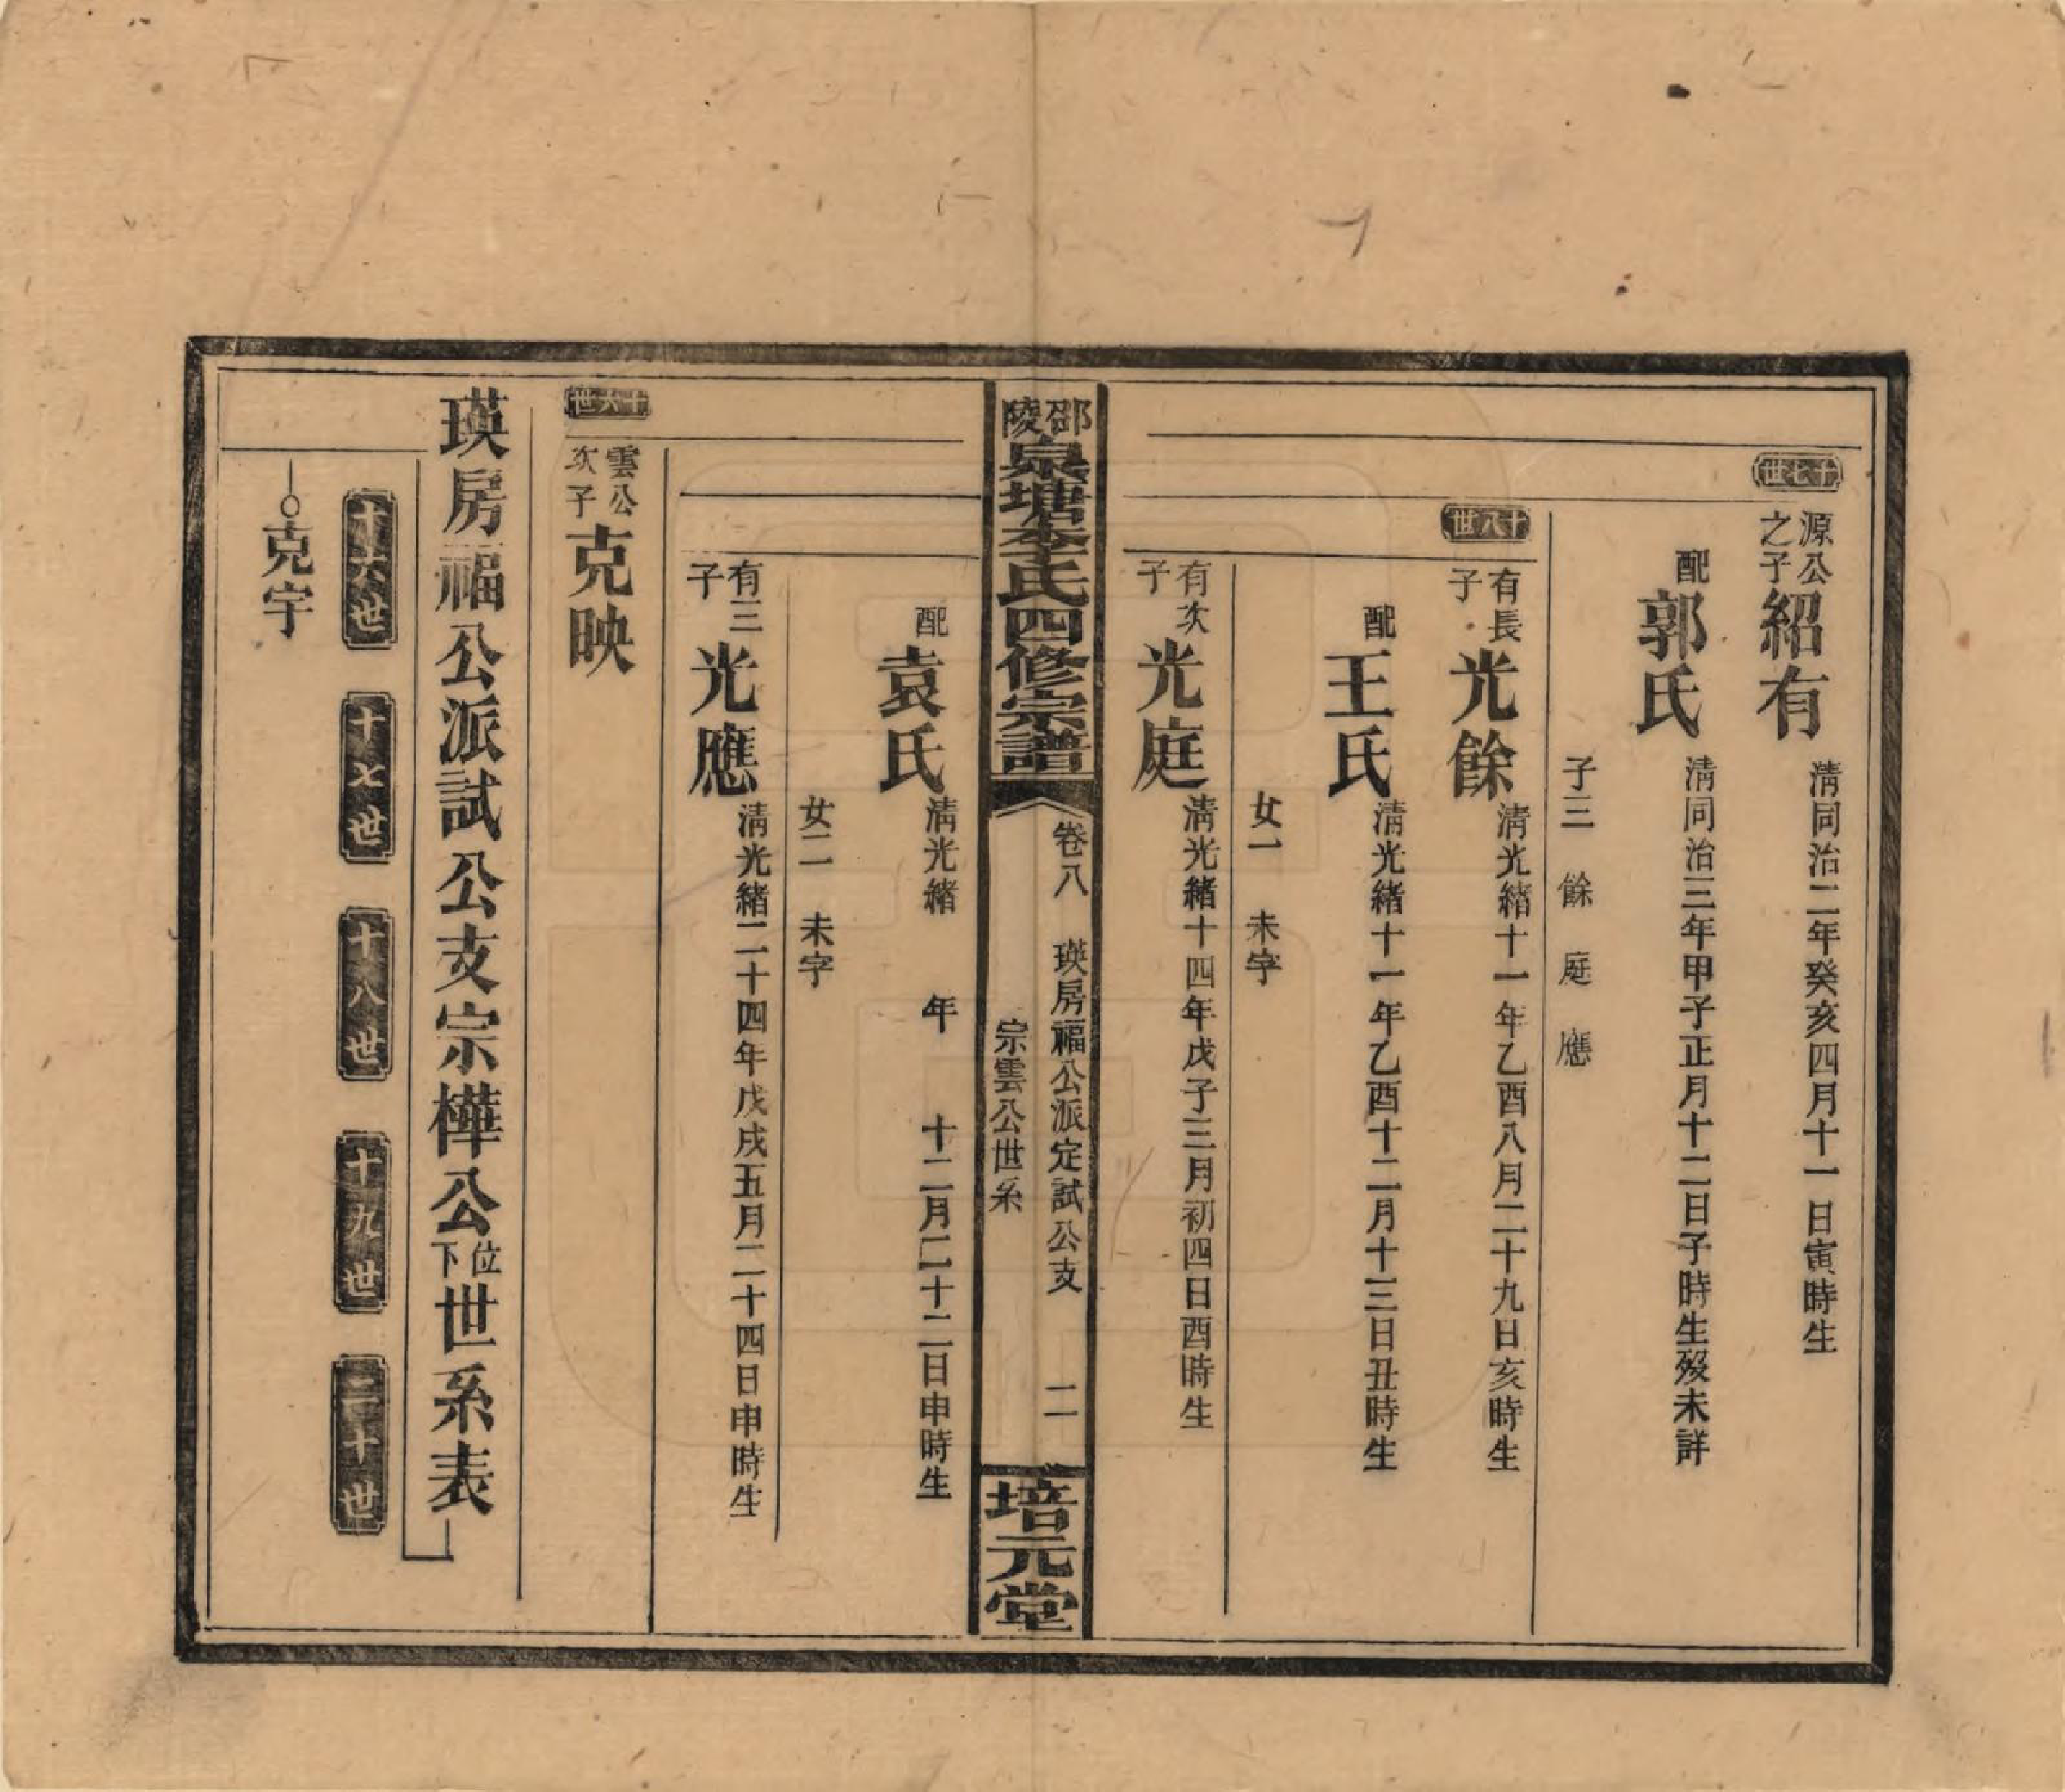 十七世
源公之子 紹有 清同治二年癸亥四月十一日寅時生
配 郭氏 清同治三年甲子正月十二日子時生歿未詳
子三 餘 庭 應
十八世
有長子 光餘 清光緒十一年乙酉八月二十九日亥時生
配 王氏 清光緒十一年乙酉十二月十三日丑時生
女一 未字
有次子 光庭 清光緒十四年戊子三月初四日酉時生
邵陵 泉塘李氏四修宗譜
卷八 瑛房福公派定試公支
宗雲公世系
二
培元堂
配 袁氏 清光緒 年 十二月二十二日申時生
女二 未字
有三子 光應 清光緒二十四年戊戌五月二十四日申時生
十六世
雲公次子 克映
瑛房福公派試公支宗樺公位下世系表
十六世 十七世 十八世 十九世 二十世
克宇